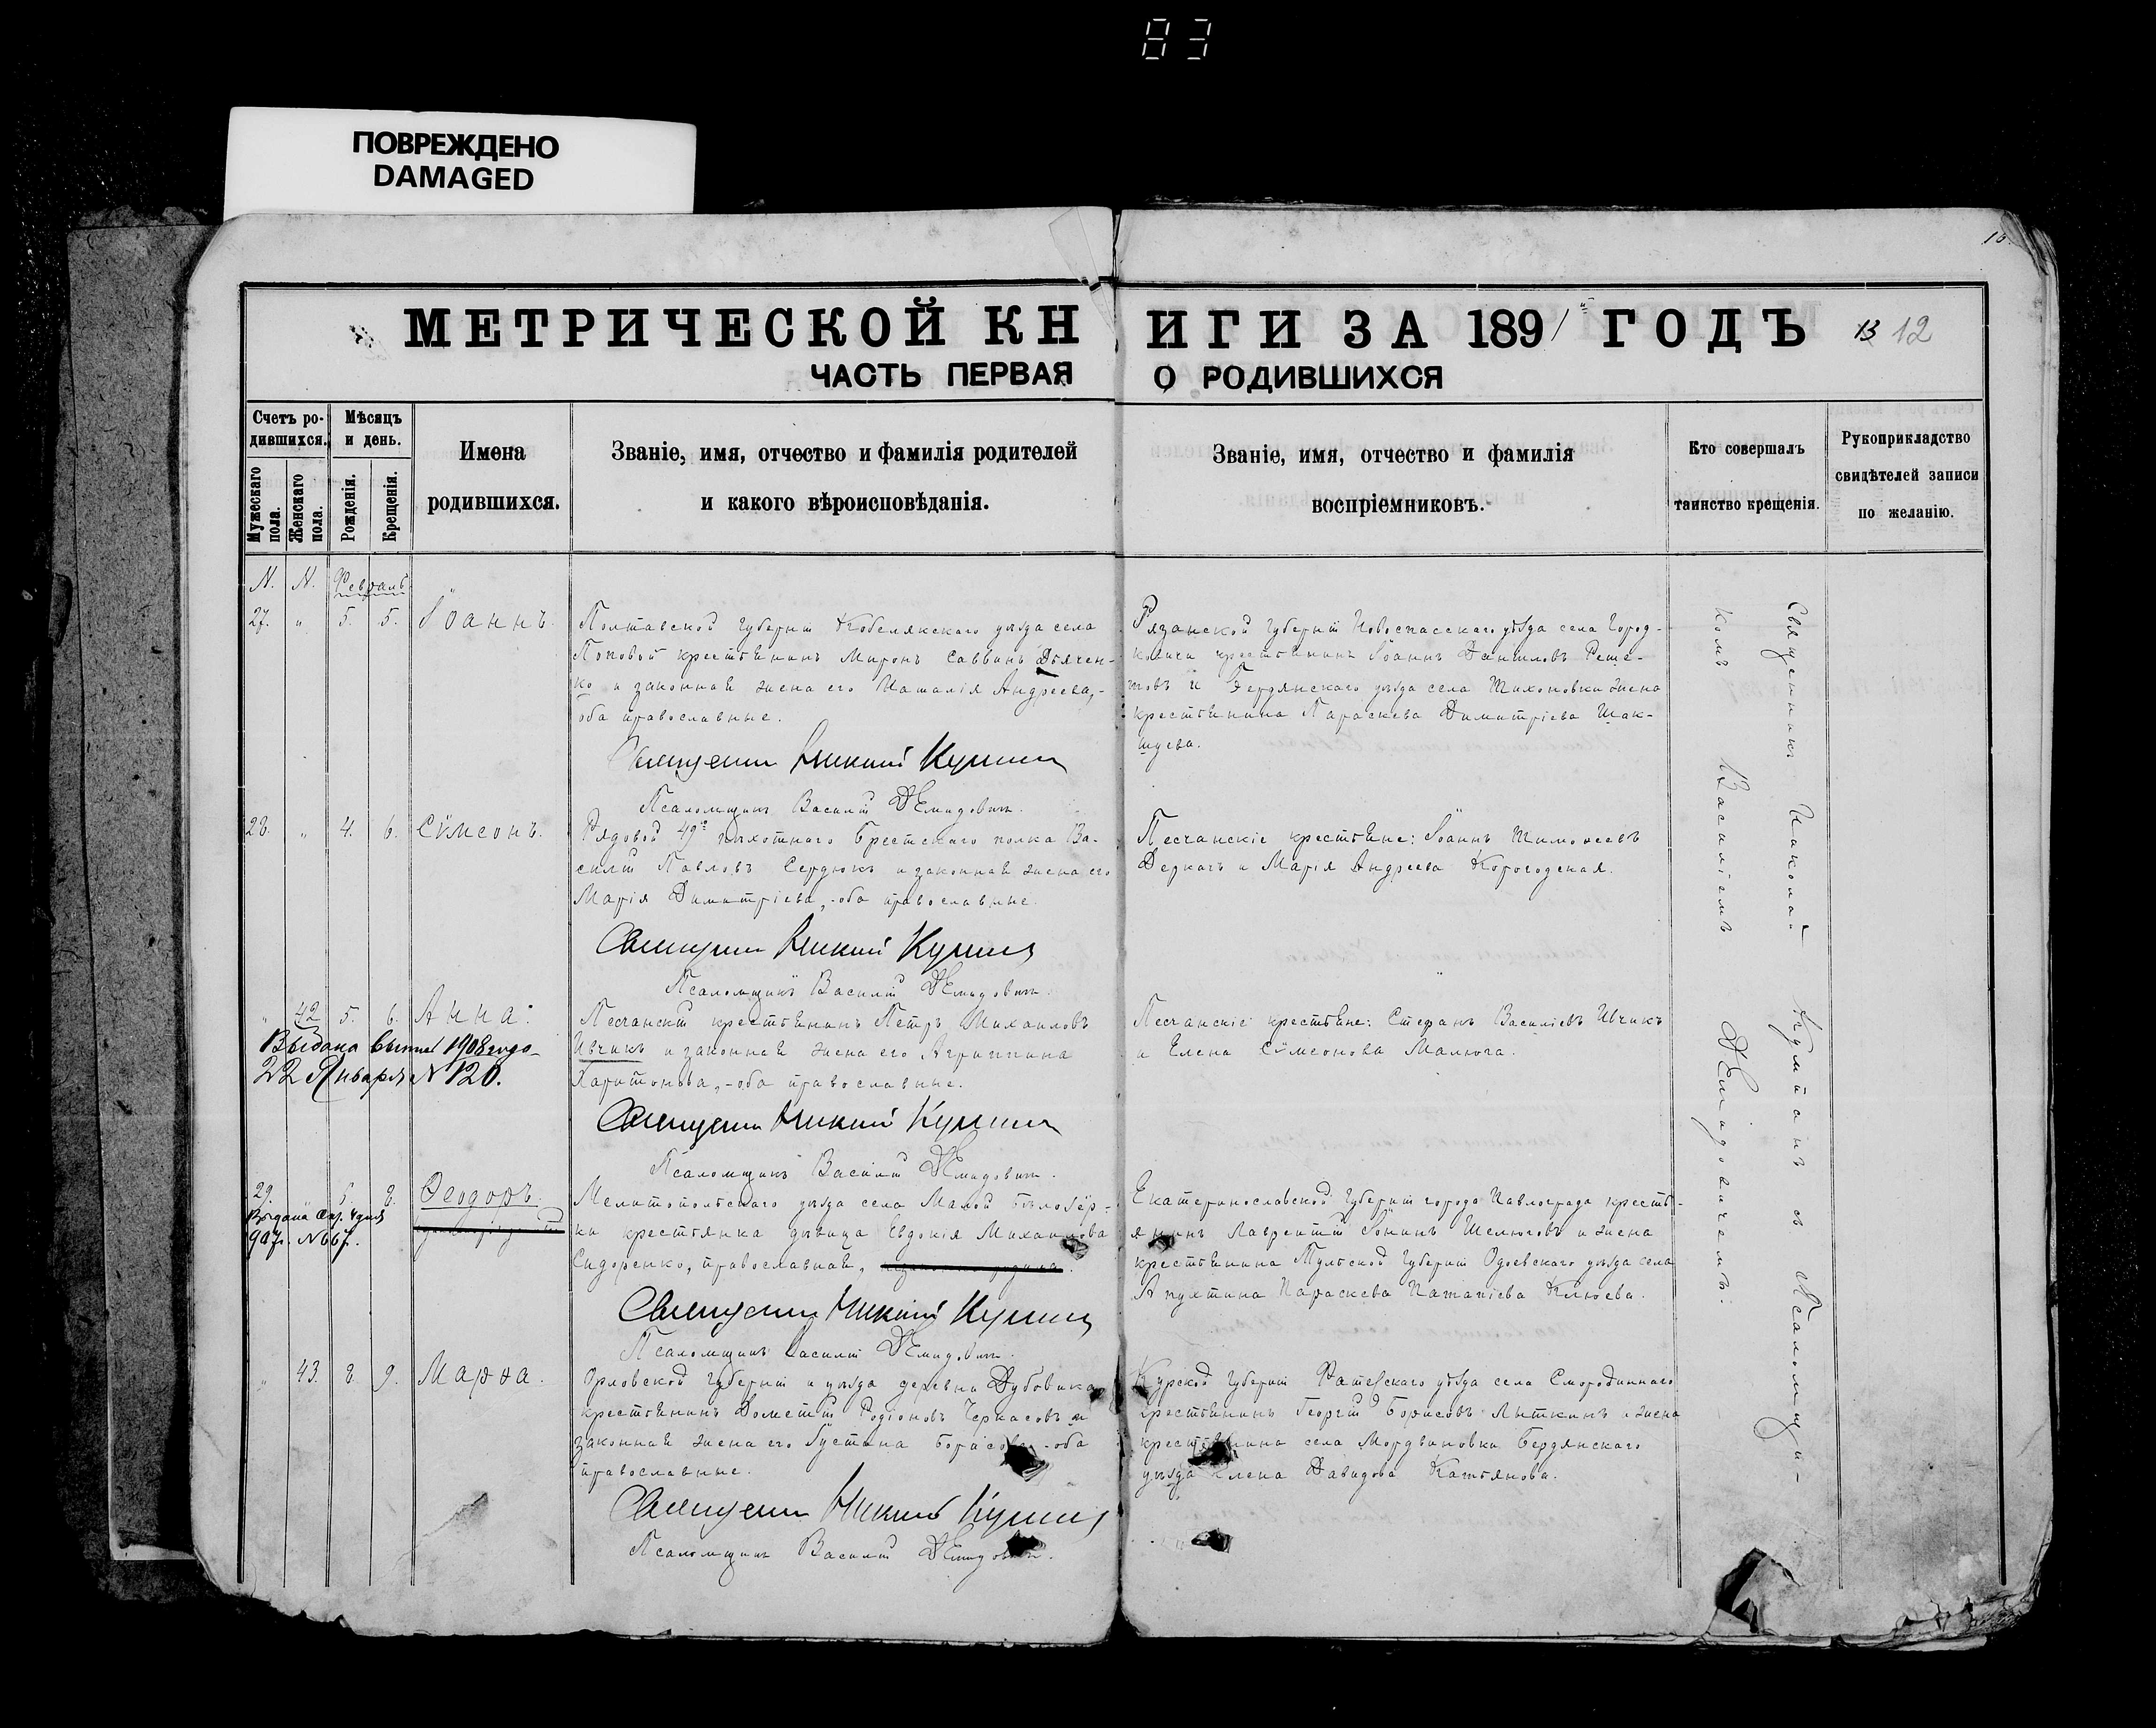 83
ПОВРЕЖДЕНО
DAMAGED
10.
МЕТРИЧЕСКОЙ КНИГИ ЗА 1891 ГОДЪ 13 12
ЧАСТЬ ПЕРВАЯ О РОДИВШИХСЯ
Счетъ ро-
дившихся.
Мужескаго пола.
Женскаго пола.
Мѣсяцъ
и день.
Рожденія.
Крещенія.
Имена
родившихся.
Званіе, имя, отчество и фамилія родителей
и какого вѣроисповѣданія.
Званіе, имя, отчество и фамилія
воспріемниковъ.
Кто совершалъ
таинство крещенія.
Рукоприкладство
свидѣтелей записи
по желанію.
N. N. Февраль
27. " 5. 5. Іоаннъ.
Полтавской губерніи Кобелякскаго уѣзда села
Поповой крестьянинъ Миронъ Саввинъ Дьячен-
ко и законная жена его Наталія Андреева,-
оба православные.
Священникъ
Псаломщикъ Василій Демидовичъ.
Рязанской губерніи Новоспасскаго уѣзда села Город-
крестьянинъ Іоаннъ Даниловъ Реше-
товъ и Бердянскаго уѣзда села Тихоновки жена
крестьянина Параскева Димитріева Шак-
28. " 4. 6. Сѵмеонъ.
Рядовой 49го пѣхотнаго Брестскаго полка Ва-
силій Павловъ Сердюкъ и законная жена его
Марія Димитріева,-оба православные.
Священникъ
Псаломщикъ Василій Демидовичъ.
Песчанскіе крестьяне: Іоаннъ Тимоѳеевъ
Деркачъ и Марія Андреева
" 42 5. 6. Анна.
Выдана 1908 года
22 Января N 120.
Песчанскій крестьянинъ Петръ Михаиловъ
Ивчикъ и законная жена его Агриппина
Харитонова,-оба православные.
Священникъ
Псаломщикъ Василій Демидовичъ.
Песчанскіе крестьяне: Стефанъ Василіевъ Ивчикъ
и Елена Сѵмеонова Малюга.
29. " 5. 8. Ѳеодоръ.
Выдана
907г. N 667.
Мелитопольскаго уѣзда села Малой Бѣлозёр-
ки крестьянка дѣвица Евдокія Михаилова
Сидоренко, православная,
Священникъ
Псаломщикъ Василій Демидовичъ.
Екатеринославской губерніи города Павлограда кресть-
янинъ Лаврентій Іонинъ Шелюговъ и жена
крестьянина Тульской губерніи Одоевскаго уѣзда села
Апухтина Параскева Патапіева Клюева.
" 43. 8. 9. Марѳа.
Орловской губерніи и уѣзда деревни
крестьянинъ Дометій Родіоновъ Черкасовъ и
законная жена его Іустина оба
православные.
Священникъ
Псаломщикъ Василій
Курской губерніи Фатежскаго уѣзда села Смородиннаго
крестьянинъ Георгій Борисовъ Лыткинъ и жена
крестьянина села Мордвиновки Бердянскаго
уѣзда Елена Давидова
Священникъ Николай съ Псаломщи-
комъ Василіемъ Демидовичемъ.